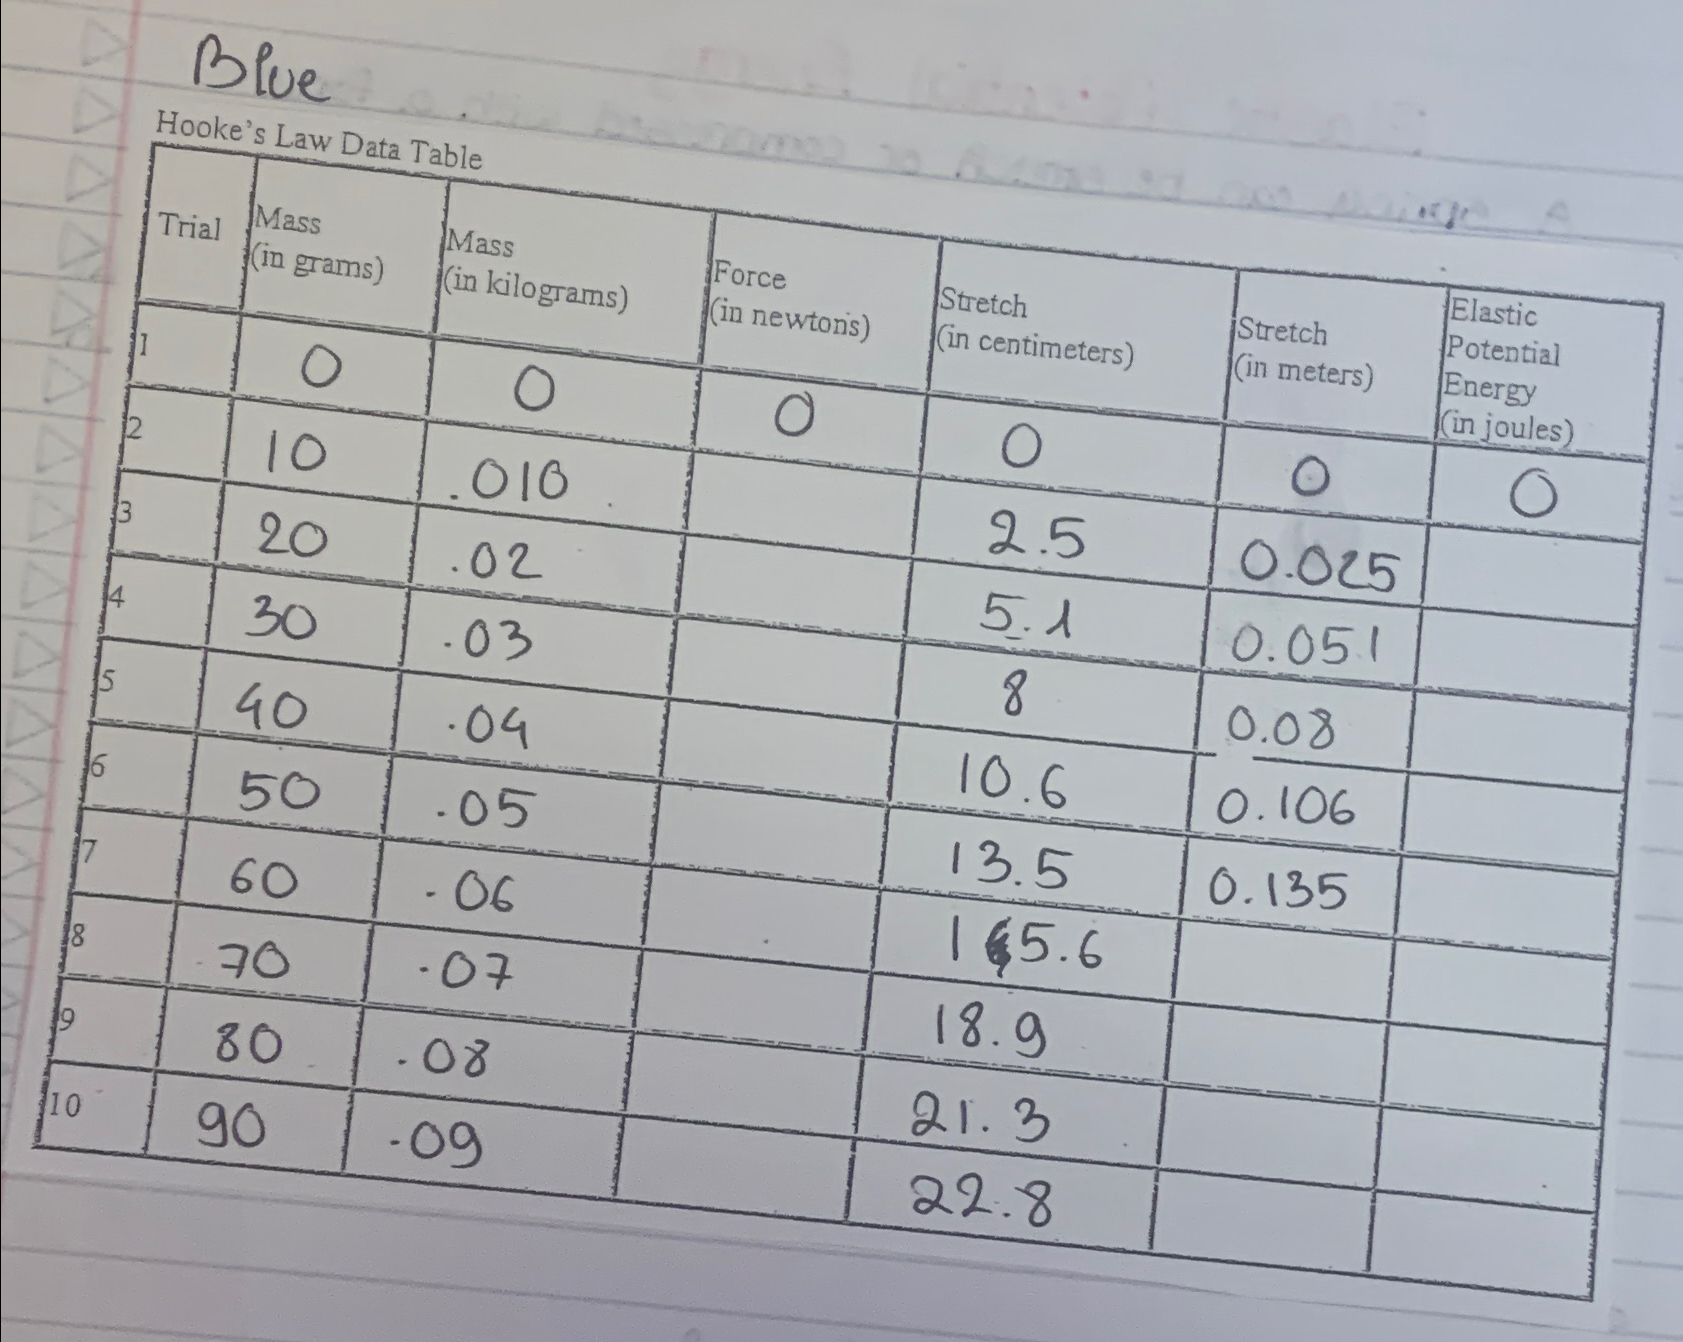 Blue
Hooke's Law Data Table
Trial Mass (in grams) Mass (in kilograms) Force (in newtons) Stretch (in centimeters) Stretch (in meters) Elastic Potential Energy (in joules)
1 0 0 0 0 0 0
2 10 .010 2.5 0.025
3 20 .02 5.1 0.051
4 30 .03 8 0.08
5 40 .04 10.6 0.106
6 50 .05 13.5 0.135
7 60 .06 15.6
8 70 .07 18.9
9 80 .08 21.3
10 90 .09 22.8